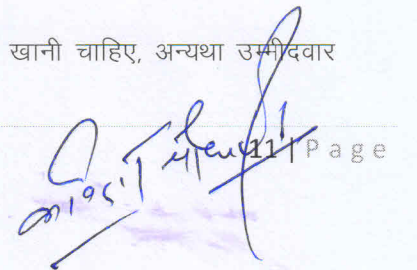 खानी चाहिए, अन्यथा उम्मीदवार
11 | P a g e